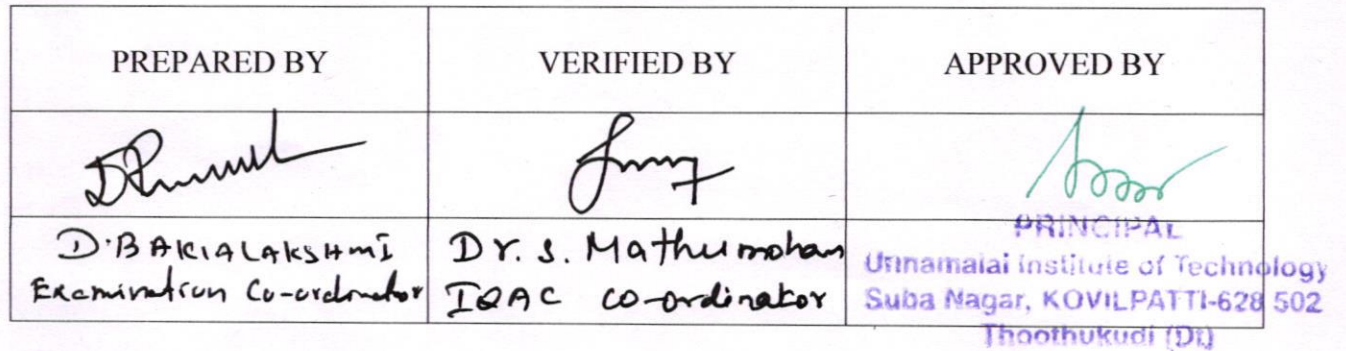 PREPARED BY
VERIFIED BY
APPROVED BY
D.BAKIALAKSHMI
Examination Co-ordinator
Dr. S. Mathumohan
IQAC CO-ordinator
PRINCIPAL
Unnamalai Institute of Technology
Suba Nagar, KOVILPATTI-628 502
Thoothukudi (Dt)